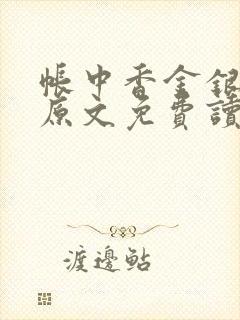 帳中香金銀
原文免費讀
渡邊鮎